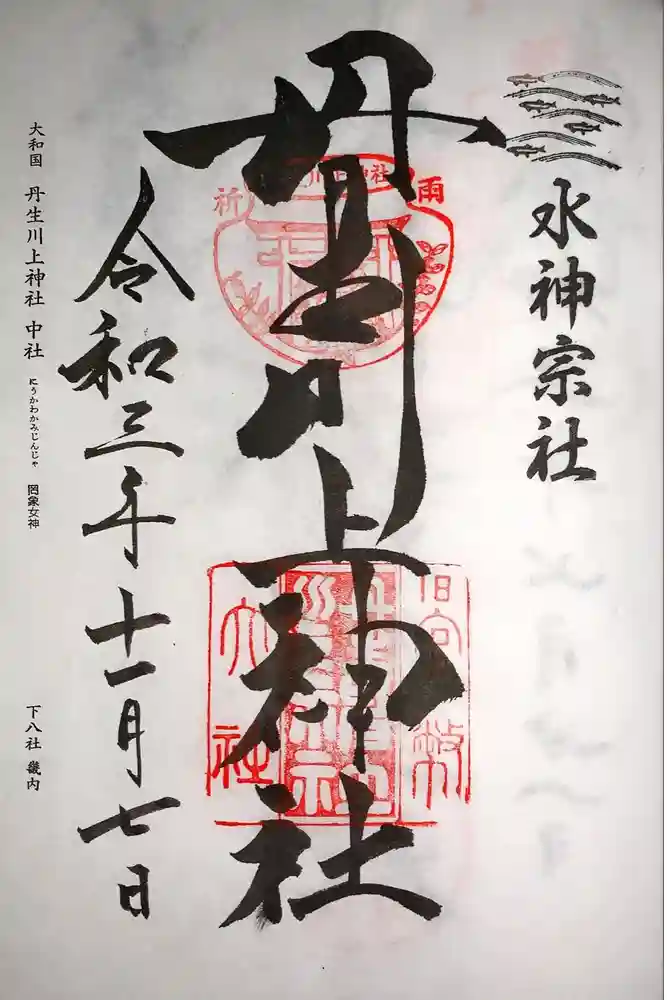 水神宗社
丹生川上神社
雨
祈
官幣
大社
令和三年十一月七日
大和国 丹生川上神社 中社 にうかわかみじんじゃ 罔象女神
下八社 畿内